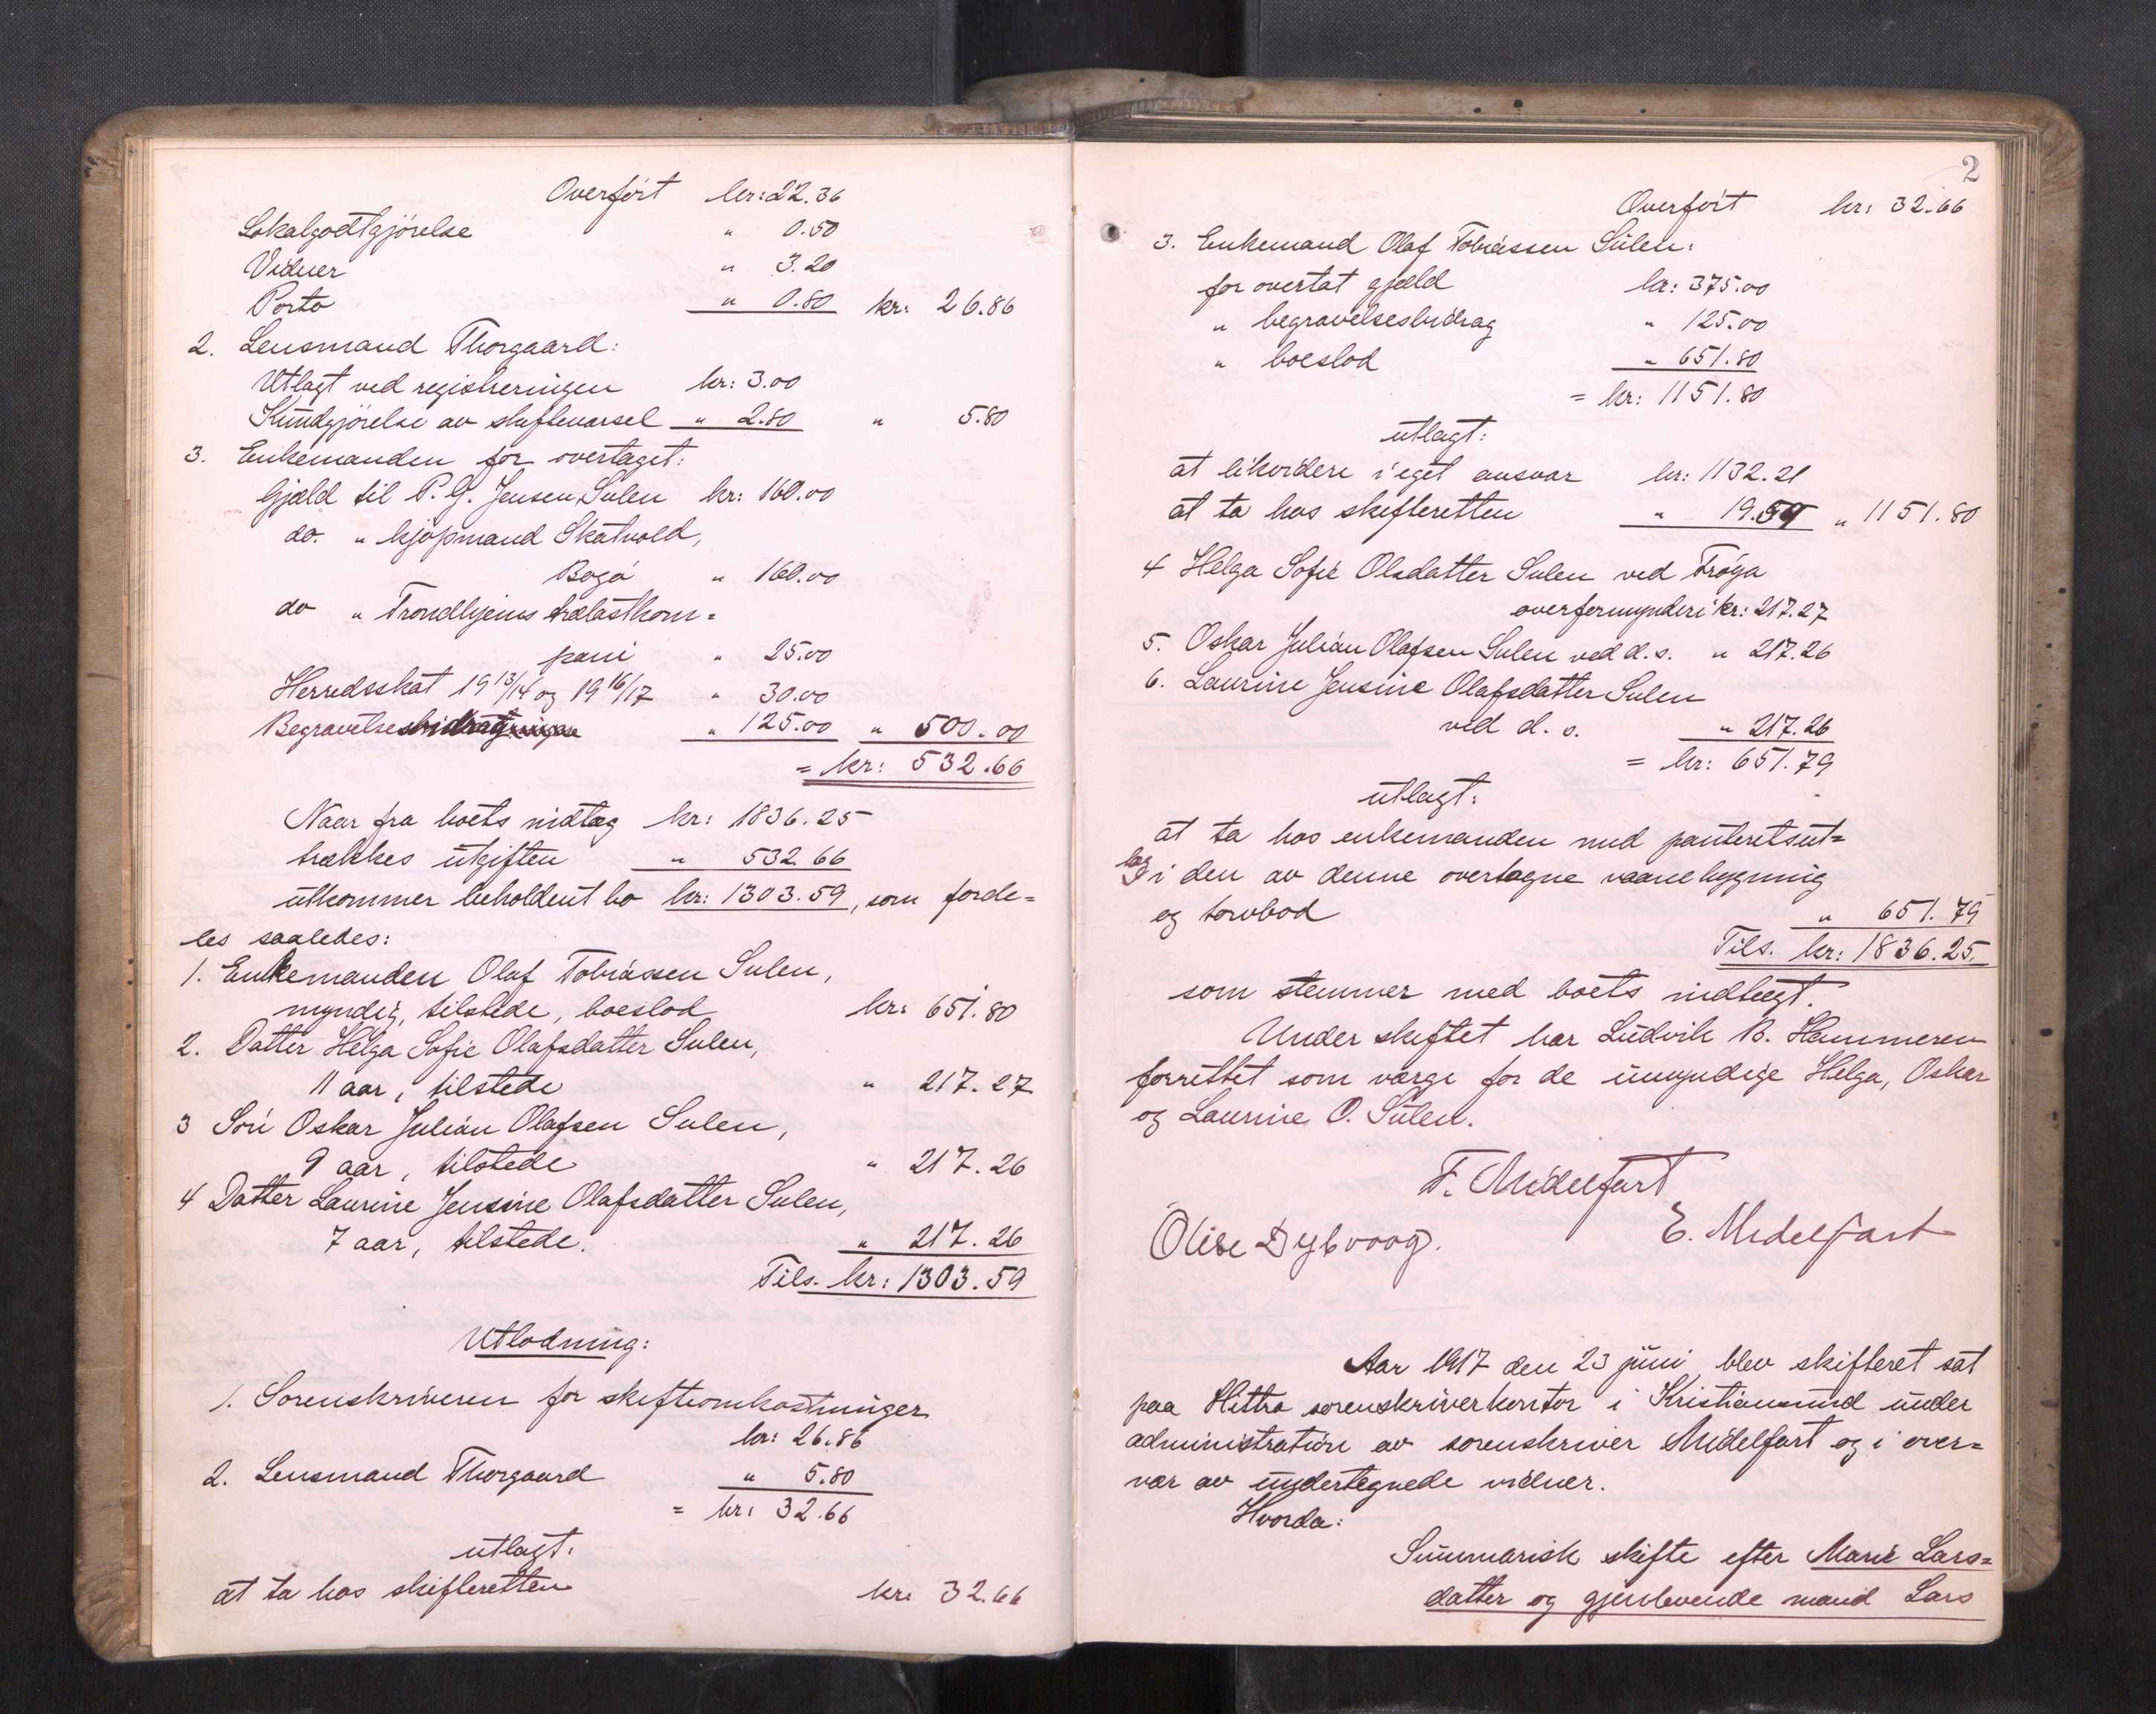 Overført kr: 22.36
Lokalgodtgjørelse " 0.50
Vidner " 3.20
Porto " 0.80 kr: 26.86
2. Lensmand Thorgaard:
Utlagt ved registreringen kr: 3.00
Kundgjørelse av skiftevarsel " 2.80 " 5.80
3. Enkemanden for overtaget:
Gjæld til P. G. Jensen Sulen kr: 160.00
do. " kjøpmand Skatvold,
Bogø " 160.00
do " Trondhjems trælastkom=
pani " 25.00
Herredsskat 19 13/14 og 19 16/17 " 30.00
Begravelsesbidrag " 125.00 " 500.00
= kr: 532.66
Naar fra boets indtæg kr: 1836.25
trækkes utgiften " 532 66
utkommer beholdent bo kr: 1303.59, som forde=
les saaledes:
1. Enkemanden Olaf Tobiassen Sulen,
myndig, tilstede, boeslod kr: 651.80
2. Datter Helga Sofie Olafsdatter Sulen,
11 aar, tilstede " 217.27
3 Søn Oskar Julian Olafsen Sulen,
9 aar, tilstede " 217.26
4 Datter Laurine Jensine Olafsdatter Sulen,
7 aar, tilstede. " 217.26
Tils. kr: 1303.59
Utlodning:
1. Sorenskriveren for skifteomkostninger
kr: 26.86
2. Lensmand Thorgaard " 5.80
= kr: 32.66
utlagt:
at ta hos skifteretten kr: 32.66
2
Overført kr: 32.66
3. Enkemand Olaf Tobiassen Sulen:
for overtat gjæld kr: 375.00
" begravelsesbidrag " 125.00
" boeslod " 651.80
= kr: 1151.80
utlagt:
at likvidere i eget ansvar kr: 1132.21
at ta hos skifteretten " 19.59 " 1151.80
4 Helga Sofie Olsdatter Sulen ved Frøya
overformynderi kr: 217.27
5. Oskar Julian Olafsen Sulen ved d. s. " 217.26
6. Laurine Jensine Olafsdatter Sulen
ved d. s. " 217.26
= kr: 651.79
utlagt:
at ta hos enkemanden med panteretsut=
læg i den av denne overtagne vaanebygning
og torvbod " 651.79
Tils. kr: 1836.25.
som stemmer med boets indtægt.
Under skiftet har Ludvik B. Hammeren
forrettet som værge for de umyndige Helga, Oskar
og Laurine O. Sulen.
F. Midelfart
Olise Dybvoog. E. Midelfart
Aar 1917 den 23 juni blev skifteret sat
paa Hittra sorenskriverkontor i Kristiansund under
administration av sorenskriver Midelfart og i over=
vær av undertegnede vidner.
Hvorda:
Summarisk skifte efter Marie Lars=
datter og gjenlevende mand Lars